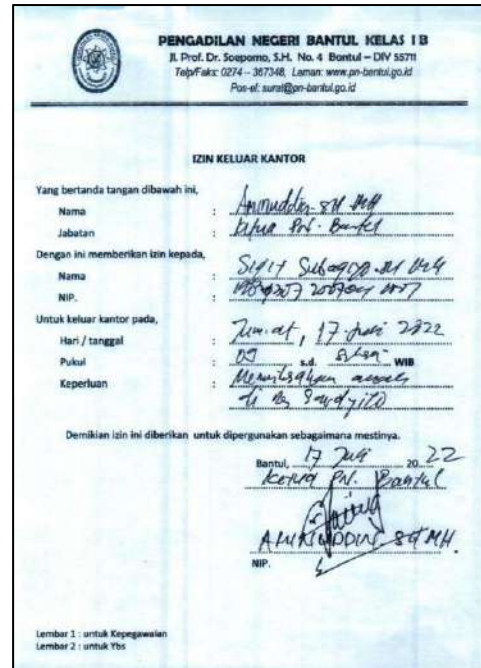 PENGADILAN NEGERI BANTUL KELAS I B
Jl. Prof. Dr. Soepomo, S.H. No. 4 Bantul – DIY 55711
Telp/Faks: 0274 – 367348, Laman: www.pn-bantul.go.id
Pos-el: surat@pn-bantul.go.id
IZIN KELUAR KANTOR
Yang bertanda tangan dibawah ini,
Nama : Aminuddin SH MH
Jabatan : Ketua PN. Bantul
Dengan ini memberikan izin kepada,
Nama : Sigit Subagyo SH MH
NIP. :
Untuk keluar kantor pada,
Hari / tanggal : Jum'at, 17 2022
Pukul : 09 s.d. WIB
Keperluan :
di
Demikian izin ini diberikan untuk dipergunakan sebagaimana mestinya.
Bantul, 17 2022
Ketua PN. Bantul
AMINUDDIN SH MH
NIP.
Lembar 1 : untuk Kepegawaian
Lembar 2 : untuk Ybs